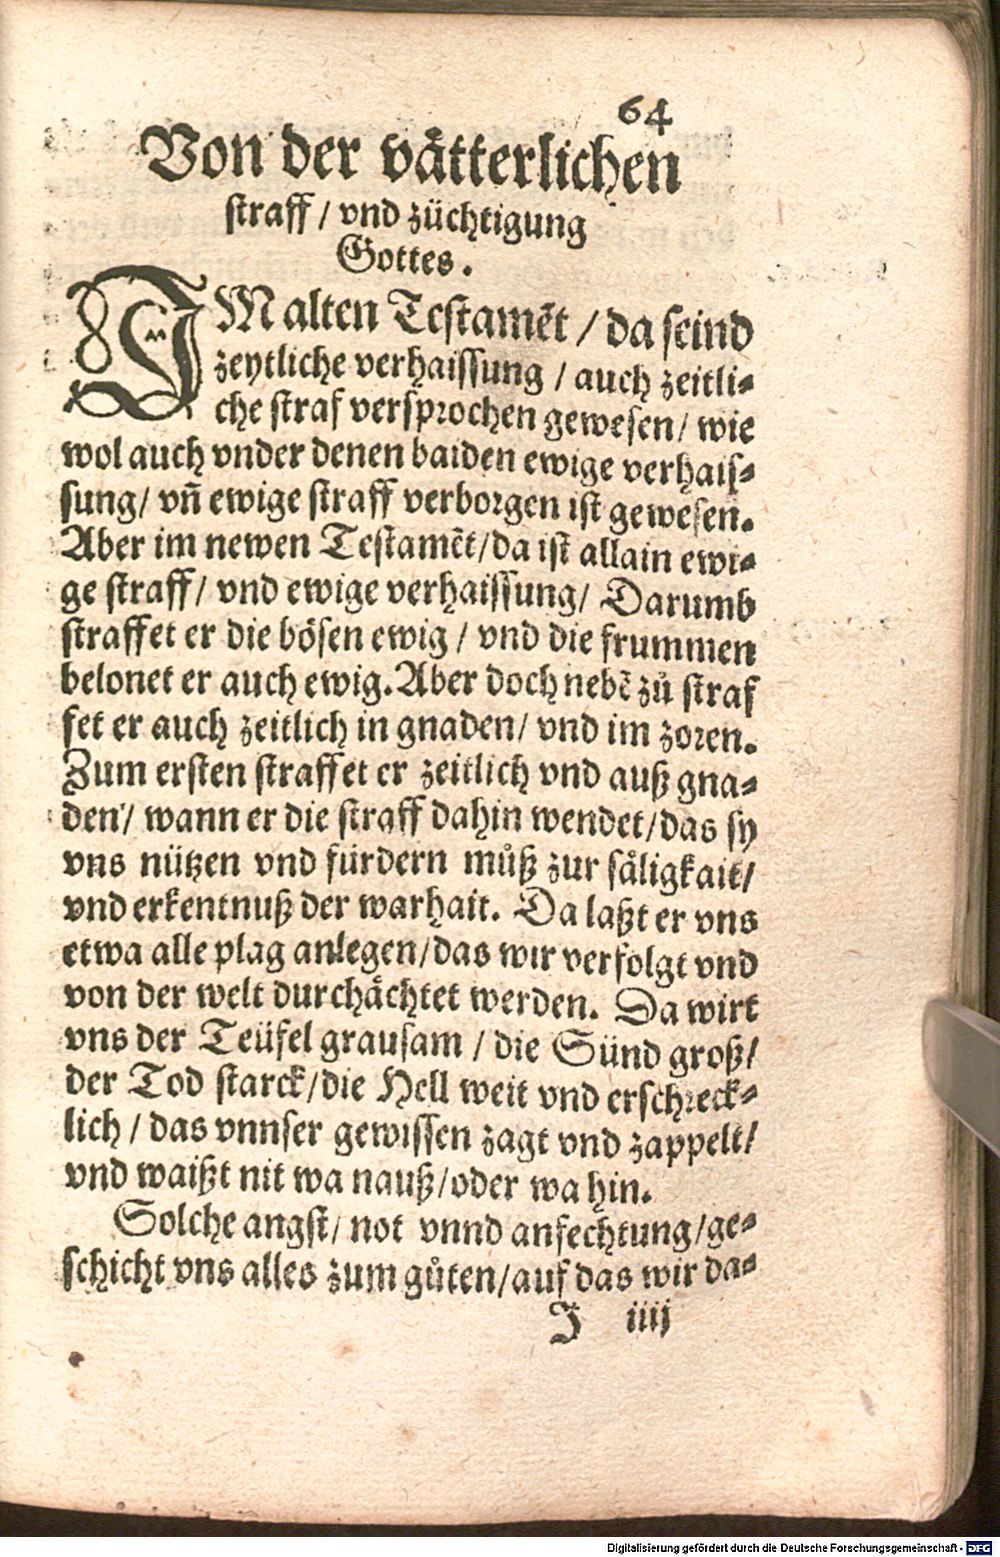 64
Von der våtterlichen
straff / vnd züchtigung
Gottes.
IM alten Testamēt / da seind
zeytliche verhaissung / auch zeitli⸗
che straf versprochen gewesen / wie
wol auch vnder denen baiden ewige verhais⸗
sung / vñ ewige straff verborgen ist gewesen.
Aber im newen Testamēt / da ist allain ewi⸗
ge straff / vnd ewige verhaissung / Darumb
straffet er die bösen ewig / vnd die frummen
belonet er auch ewig. Aber doch nebē zů straf
fet er auch zeitlich in gnaden / vnd im zoren.
Zum ersten straffet er zeitlich vnd auß gna⸗
den / wann er die straff dahin wendet / das sy
vns nützen vnd fürdern můß zur såligkait /
vnd erkentnuß der warhait. Da laßt er vns
etwa alle plag anlegen / das wir verfolgt vnd
von der welt durchåchtet werden. Da wirt
vns der Teüfel grausam / die Sünd groß /
der Tod starck / die Hell weit vnd erschreck⸗
lich / das vnnser gewissen zagt vnd zappelt /
vnd waißt nit wa nauß / oder wa hin.
Solche angst / not vnnd anfechtung / ge⸗
schicht vns alles zum gůten / auf das wir da⸗
J iiij
Digitalisierung gefördert durch die Deutsche Forschungsgemeinschaft - DFG